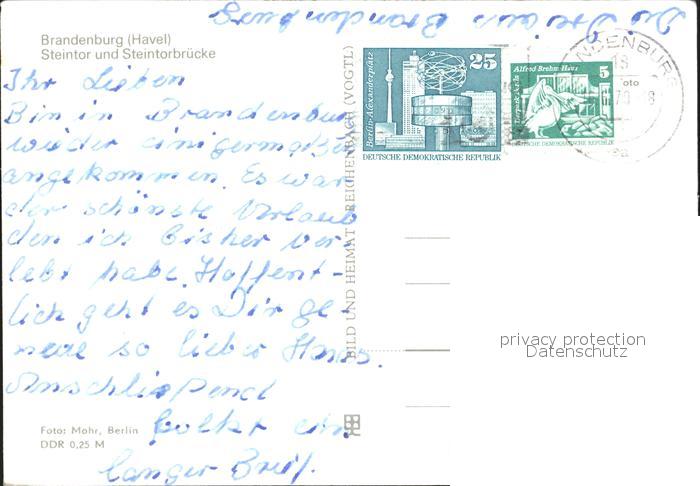 Brandenburg (Havel)
Steintor und Steintorbrücke
Ihr Lieben
Bin in Brandenburg
wieder einigermaßen
angekommen. Es war
der schönste Urlaub
den ich bisher ver-
lebt habe. Hoffent-
lich geht es Dir ge-
naue so lieber Hans.
Anschließend
folgt ein
langer Brief.
aus Brandenburg
Foto: Mohr, Berlin
DDR 0,25 M
BILD UND HEIMAT REICHENBACH (VOGTL)
Berlin-Alexanderplatz
25
DEUTSCHE DEMOKRATISCHE REPUBLIK
Alfred-Brehm-Haus
5
DEUTSCHE DEMOKRATISCHE REPUBLIK
NDENBURG
privacy protection
Datenschutz